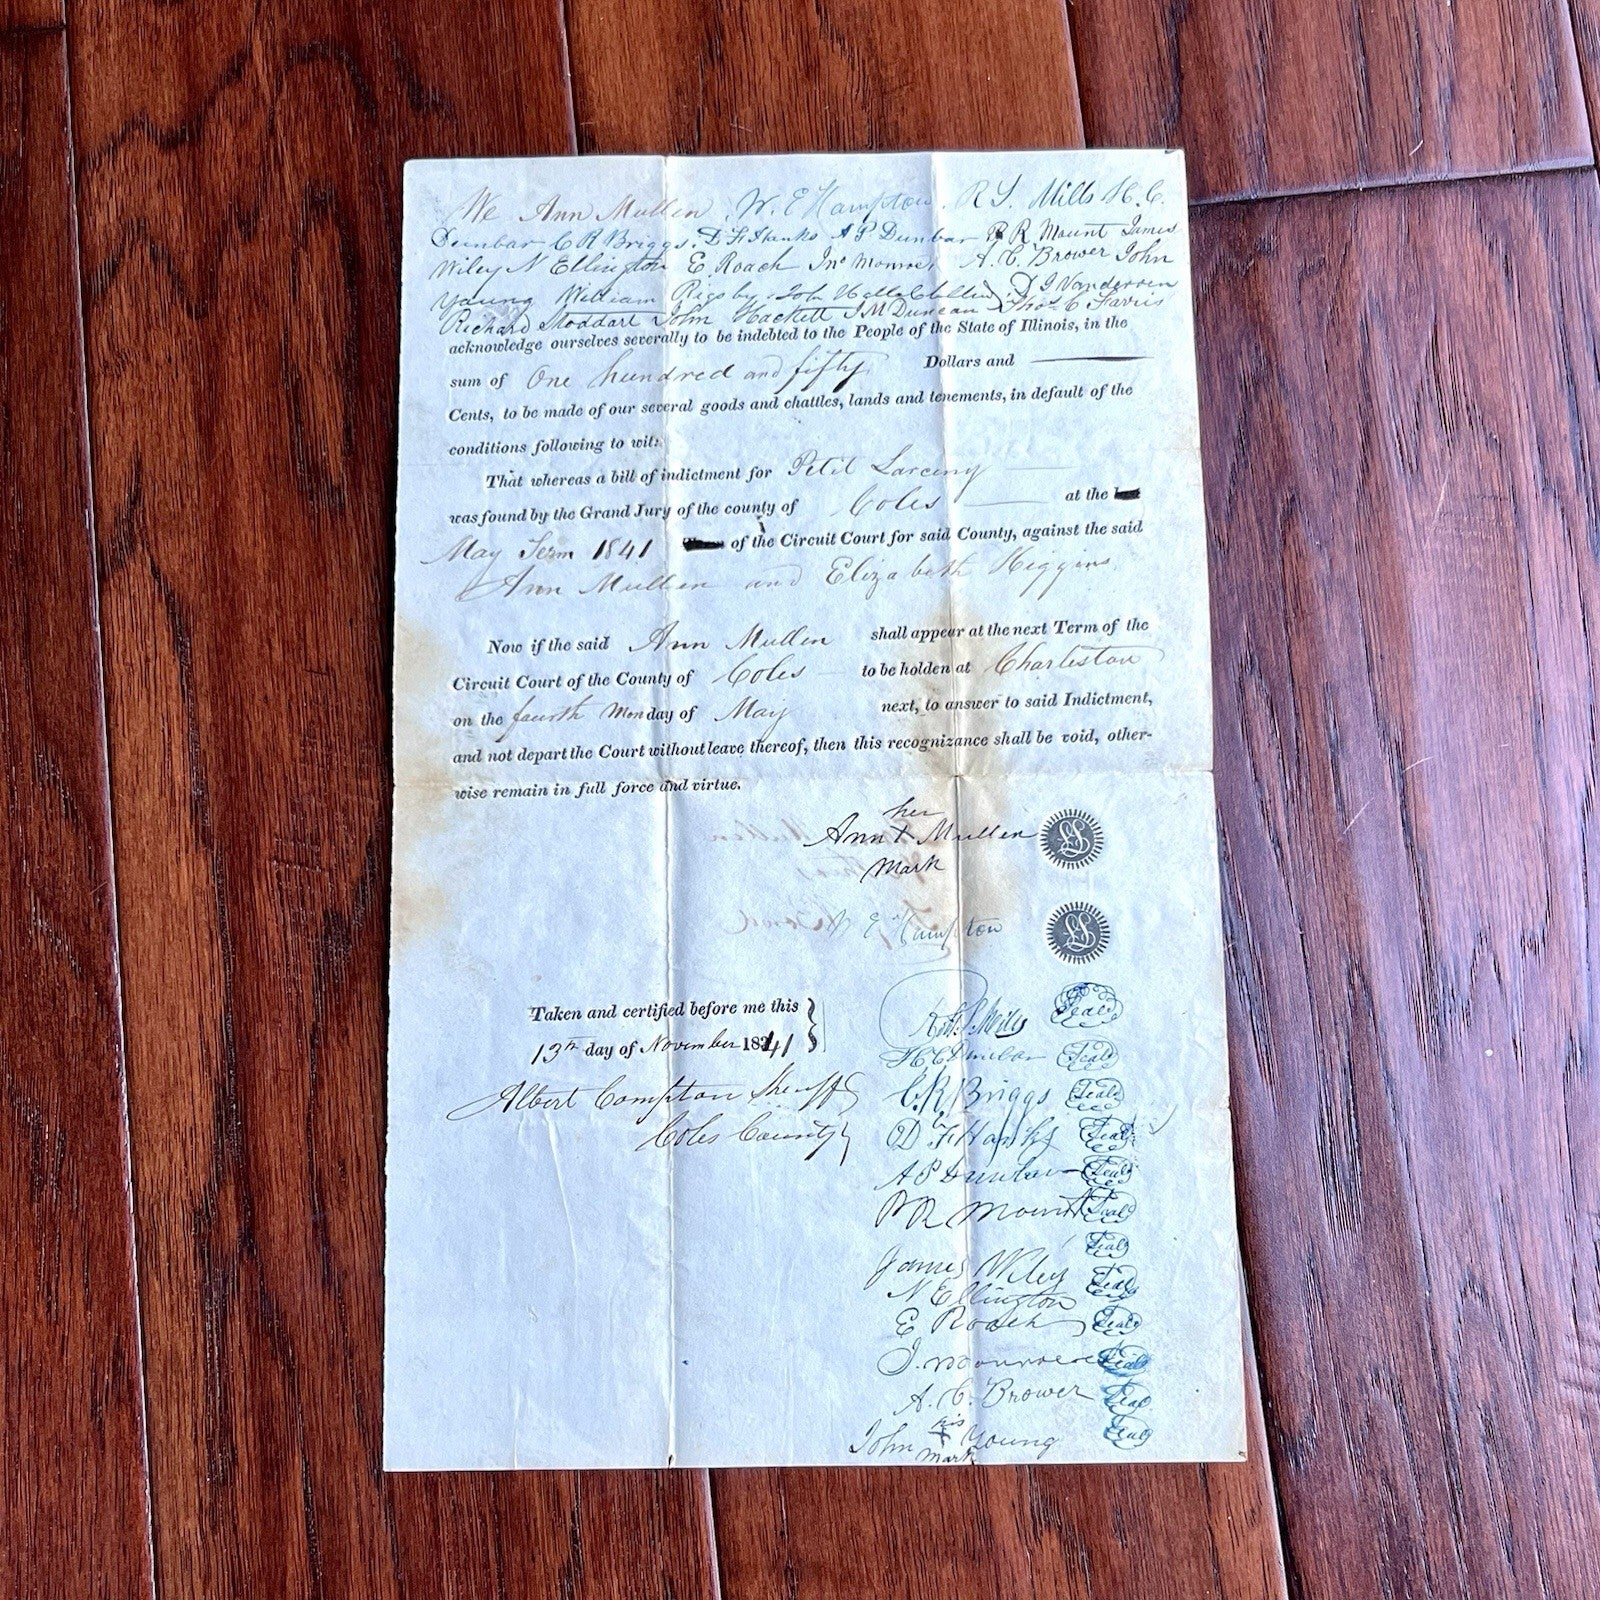 We Ann Mullen, W. E Hampton, R S. Mills H. C.
Dunbar C R Briggs. D F Hanks A P. Dunbar R R Mount James
Wiley N Ellington E. Roach Jno Monroe, A. C. Brower John
Young William Rigsby, John D J Vanderen
Richard Stoddart John Hackett J M Duncan Thos C Farris
acknowledge ourselves severally to be indebted to the People of the State of Illinois, in the
sum of One hundred and fifty Dollars and
Cents, to be made of our several goods and chattles, lands and tenements, in default of the
conditions following to wit:
That whereas a bill of indictment for Petit Larceny
was found by the Grand Jury of the county of Coles at the
May Term 1841 of the Circuit Court for said County, against the said
Ann Mullen and Elizabeth Higgins
Now if the said Ann Mullen shall appear at the next Term of the
Circuit Court of the County of Coles to be holden at Charleston
on the fourth Monday of May next, to answer to said Indictment,
and not depart the Court without leave thereof, then this recognizance shall be void, other-
wise remain in full force and virtue.
her
Ann X Mullen LS
mark
W E Hampton LS
Taken and certified before me this
13th day of November 1841
Albert Compton Sheriff
Coles County
Robt. S. Mills Seal
H C Dunbar Seal
C. R. Briggs Seal
D F Hanks Seal
A P Dunbar Seal
R R Mount Seal
Seal
James Wiley
N Ellington Seal
E Roach Seal
J. Seal
A. C. Brower Seal
his
John X Young Seal
mark